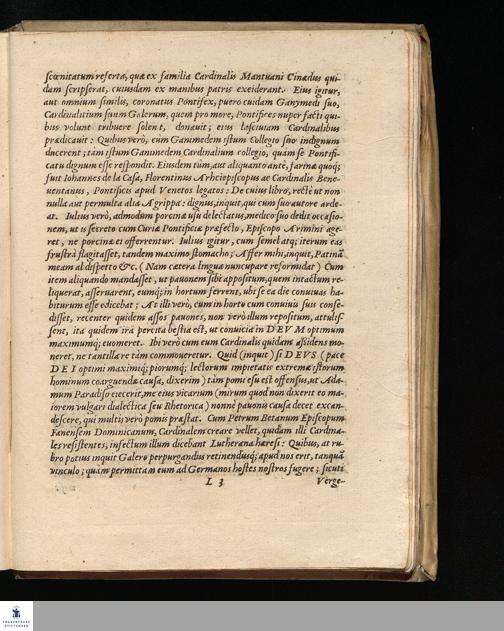 scœnitatum referta, quæ ex familia Cardinalis Mantuani Cinædus qui-
dam scripserat, cuiusdam ex manibus patris exeiderant. Eius igitur,
aut omnium similis, coronatus Pontifex, puero cuidam Ganymedi suo,
Cardinalitium suum Galerum, quem pro more, Pontifices nuper facti qui-
bus volunt tribuere solent, donauit; eius lasciuiam Cardinalibus
prædicauit: Quibus verò, cum Ganimedem istum Collegio suo indignum
ducerent; tàm istum Ganimedem Cardinalium collegio, quàm se Pontifi-
catu dignum esse respondit. Eiusdem tùm, aut aliquantò antè, farinæ quoq;
fuit Iohannes de la Casa, Florentinus Archiepiscopus ac Cardinalis Bene-
uentanus, Pontificis apud Venetos legatus: De cuius libro, rectè ut non
nulla aut permulta alia Agrippa: dignus, inquit, qui cum suo autore arde-
at. Iulius verò, admodum porcinæ usu delectatus, medico suo dedit occasio-
nem, ut is secreto cum Curiæ Pontificiæ præfecto, Episcopo Arimini age-
ret, ne porcina ei offerrentur. Iulius igitur, cum semel atq; iterum eas
frustrà flagitasset, tandem maximo stomacho; Affer mihi, inquit, Patinã
meam al dispetto &c. (Nam cætera lingua nuncupare reformidat) Cùm
item aliquando mandasset, ut pauonem sibi appositum, quem intactum re-
liquerat, asseruarent, eumq; in hortum ferrent, ubi se ea die conuiuas ha-
biturum esse edicebat; At illi verò, cum in horto cum conuiuis suis conse-
disset, recenter quidem assos pauones, non verò illum repositum, attulis-
sent, ita quidem irâ percita bestia est, ut conuicia in DEVM optimum
maximumq; euomeret. Ibi verò cum eum Cardinalis quidam assidens mo-
neret, ne tantilla re tàm commoueretur. Quid (inquit) si DEVS (pace
DEI optimi maximiq; piorumq; lectorum impietatis extremæ istorum
hominum coarguendæ causa, dixerim) tàm pomi esu est offensus, ut Ada-
mum Paradiso eiecerit, me eius vicarium (mirum quod non dixerit eo ma-
iorem vulgari dialectica seu Rhetorica) nonne pauonis causa decet excan-
descere, qui multis verò pomis præstat. Cum Petrum Betanum Episcopum
Fanensem Dominicanum, Cardinalem creare vellet, quidam illi Cardina-
les resistentes, infectum illum dicebant Lutherana hæresi: Quibus, at ru-
bro potius inquit Galero perpurgandus retinendusq; apud nos erit, tanquã
vinculo; quàm permittam eum ad Germanos hostes nostros fugere; sicuti
L 3 Verge-
FRANCKESCHE
STIFTUNGEN